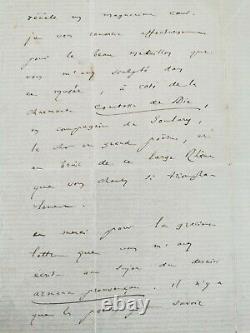 révèle un magnanime cœur.
je vous remercie affectueusement
pour le beau médaillon que
vous m'avez sculpté dans
ce musée, à côté de la
charmante Comtesse de Die,
en compagnie de Soulary,
le cher et grand poète, et
en face de ce large Rhône
que vous chantez si triomphalement.
et merci pour la gracieuse
lettre que vous m'avez
écrite au sujet du dernier
armana prouvençau. il n'y a
que les poètes pour savoir